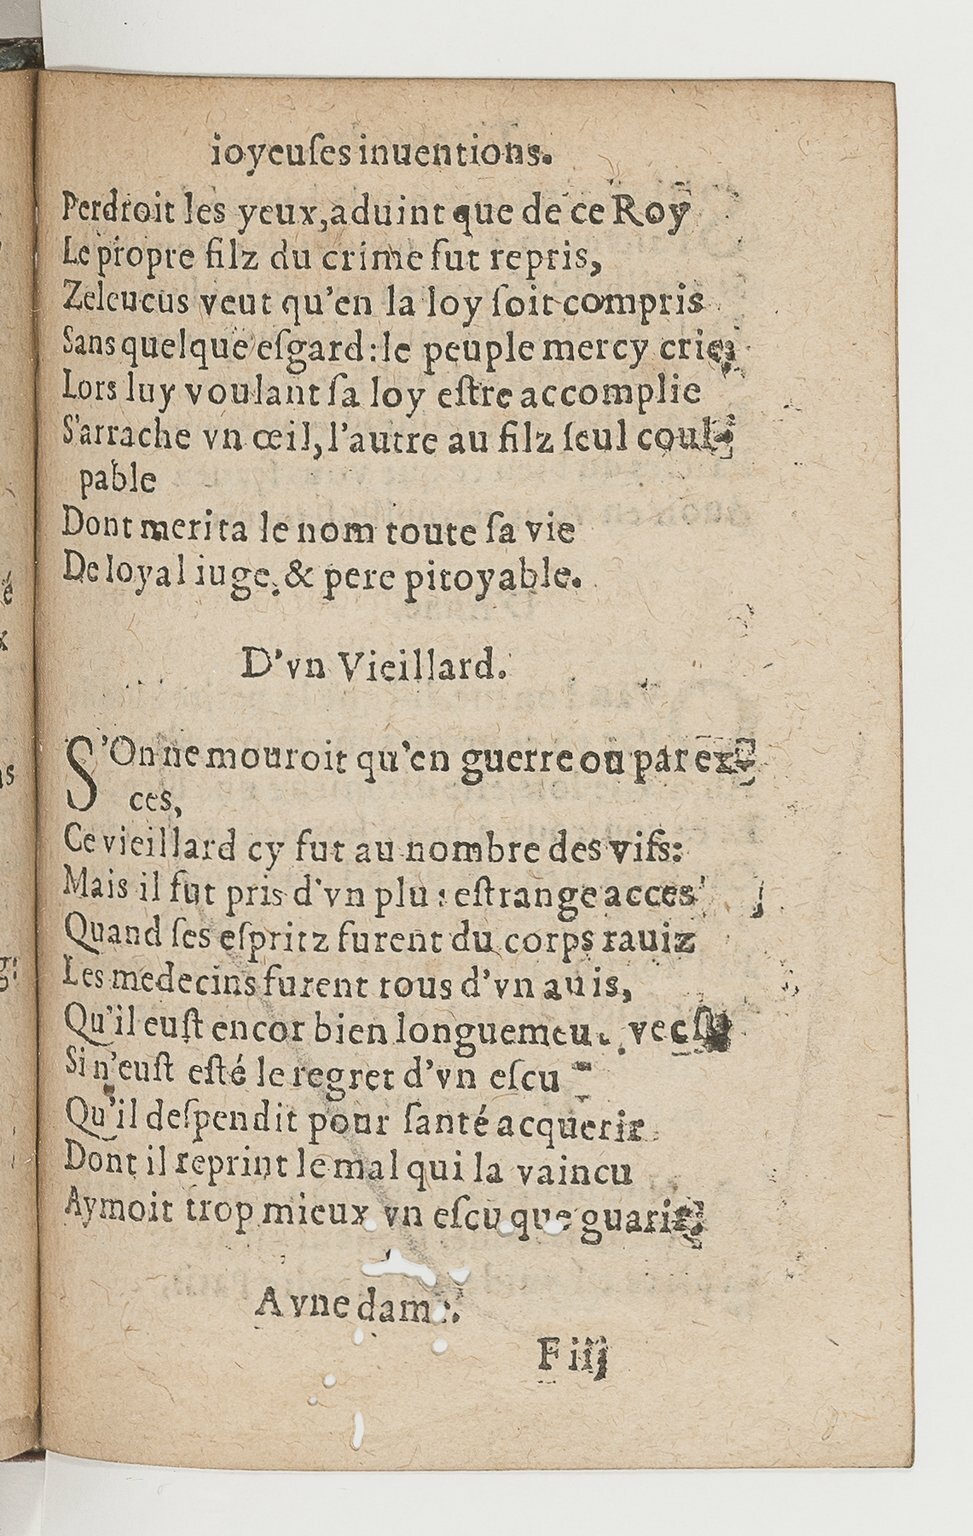 ioyeuſes inuentions.
Perdroit les yeux, aduint que de ce Roy
Le propre filz du crime fut repris,
Zeleucus veut qu'en la loy ſoit compris
Sans quelque eſgard: le peuple mercy crie,
Lors luy voulant ſa loy eſtre accomplie
S'arrache vn œil, l'autre au filz ſeul coul-
pable
Dont merita le nom toute ſa vie
De loyal iuge, & pere pitoyable.
D'vn Vieillard.
S'On ne mouroit qu'en guerre ou par ex-
ces,
Ce vieillard cy fut au nombre des vifs:
Mais il fut pris d'vn plus eſtrange acces
Quand ſes eſpritz furent du corps rauiz
Les medecins furent tous d'vn auis,
Qu'il euſt encor bien longuement
Si n'euſt eſté le regret d'vn eſcu
Qu'il deſpendit pour ſanté acquerir
Dont il reprint le mal qui la vaincu
Aymoit trop mieux vn eſcu que guarir
A vne dame.
F iij